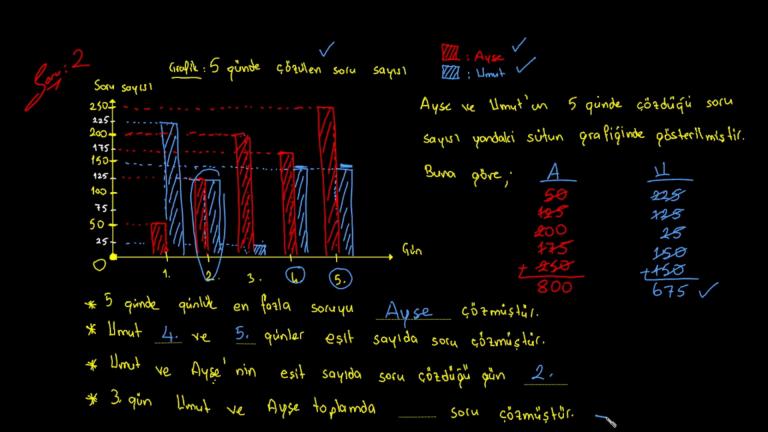 Soru: 2
Grafik: 5 günde çözülen soru sayısı
: Ayşe
: Umut
Soru sayısı
250
225
200
175
150
125
100
50
25
0
1. 2. 3. 4. 5.
Gün
Ayşe ve Umut'un 5 günde çözdüğü soru
sayısı yandaki sütun grafiğinde gösterilmiştir.
Buna göre;
A
50
125
200
175
+ 250
800
U
225
125
25
150
+ 150
675
* 5 günde günlük en fazla soruyu Ayşe çözmüştür.
* Umut 4. ve 5. günler eşit sayıda soru çözmüştür.
* Umut ve Ayşe'nin eşit sayıda soru çözdüğü gün 2.
* 3. gün Umut ve Ayşe toplamda ____ soru çözmüştür.